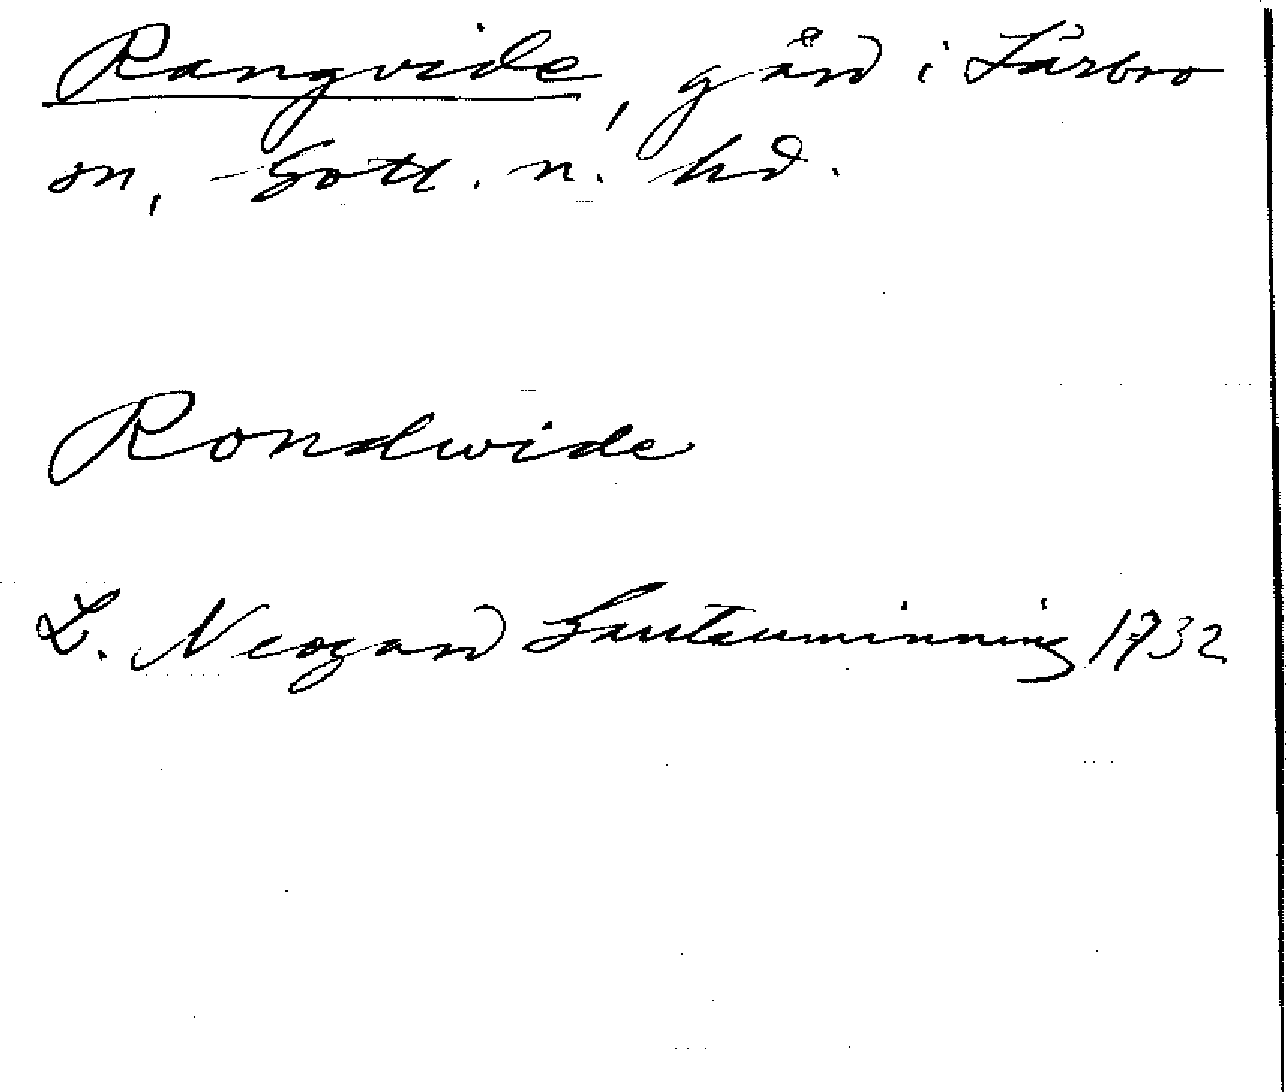 Rangvide, gård i Lärbro
sn, Gotl. n. hd.
Rondwide
L. Neogard Gautauminning 1732